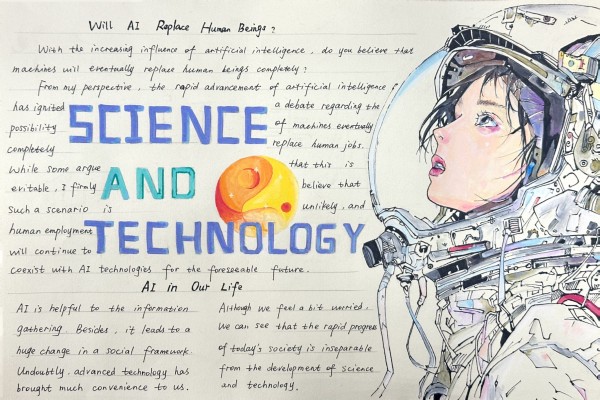 Will AI Replace Human Beings?
With the increasing influence of artificial intelligence, do you believe that
machines will eventually replace human beings completely?
From my perspective, the rapid advancement of artificial intelligence
has ignited a debate regarding the
possibility of machines eventually
completely replace human jobs.
While some argue that this is
evitable, I firmly believe that
such a scenario is unlikely, and
human employment
will continue to
coexist with AI technologies for the foreseeable future.
SCIENCE
AND
TECHNOLOGY
AI in Our Life
AI is helpful to the information
gathering. Besides, it leads to a
huge change in a social framework.
Undoubtly, advanced technology has
brought much convenience to us.
Although we feel a bit worried,
We can see that the rapid progress
of today's society is inseparable
from the development of science
and technology.